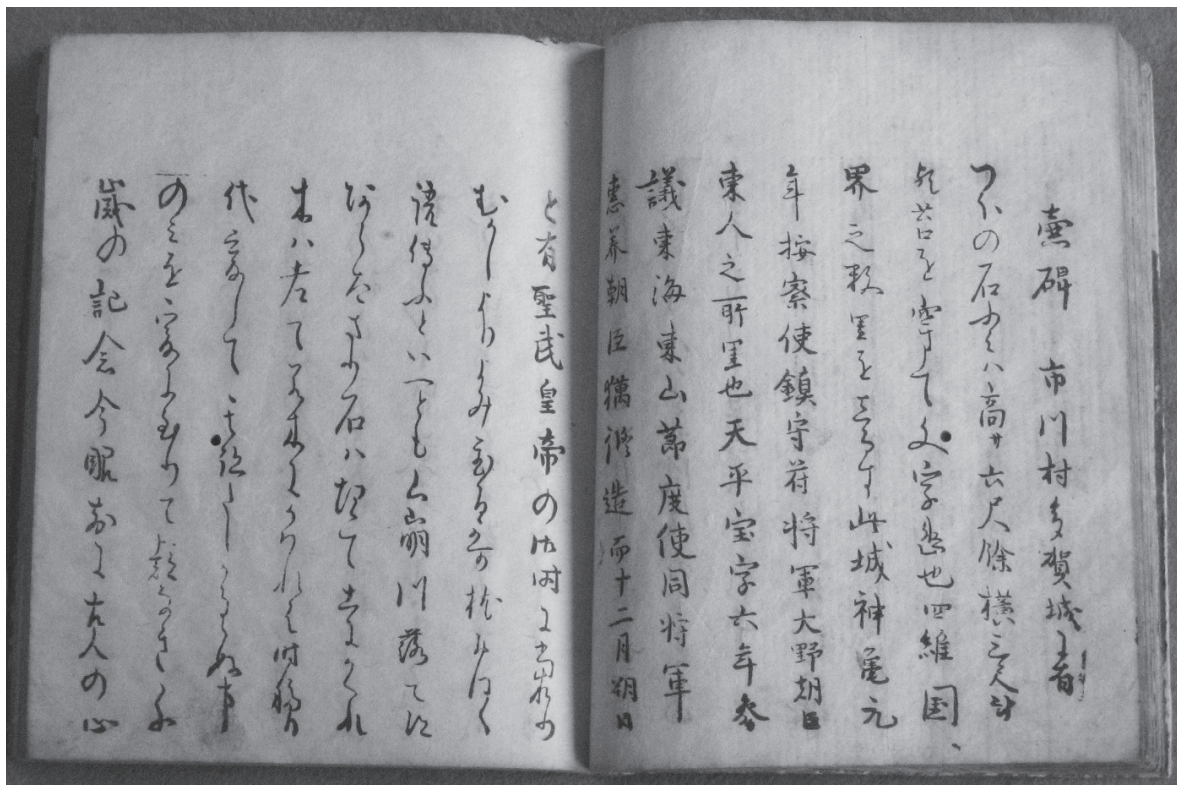 壷碑 市川村多賀城に有
つほの石ふみハ高サ六尺餘横三尺斗
歟苔を穿て文字幽也四維国
界之数里をしるす此城神亀元
年按察使鎮守府将軍大野朝臣
東人之所里也天平宝字六年参
議東海東山節度使同将軍
恵美朝臣獦修造而十二月朔日
と有聖武皇帝の御時に当れり
むかしよりよみ置る哥枕おほく
語伝ふといへとも山崩川落て道
あらたまり石ハ埋て土にかくれ
木ハ老て若木にかハれは時移り
代変して其跡たしかならぬ事
のみを爰に至りて疑なき千
歳の記念今眼前に古人の心